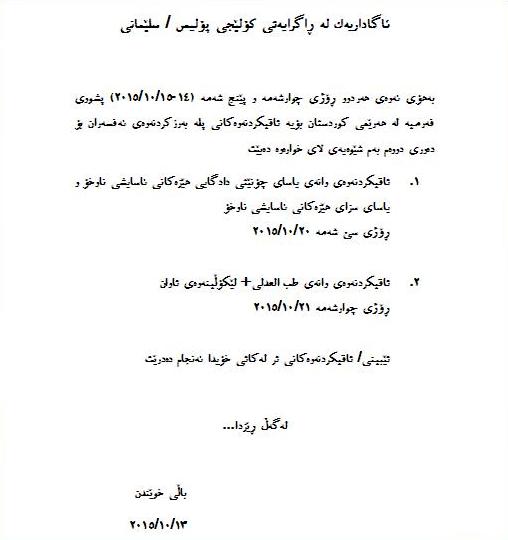 ئاگاداریەك لە ڕاگرایەتی کۆلێجی پۆلیس / سلێمانی
بەهۆی ئەوەی هەردوو ڕۆژی چوارشەمە و پێنج شەمە (١٤-٢٠١٥/١٠/١٥) پشووی
فەرمیە لە هەرێمی کوردستان بۆیە تاقیکردنەوەکانی پلە بەرزکردنەوەی ئەفسەران بۆ
دەوری دووەم بەم شێوەیەی لای خوارەوە دەبێت
١. تاقیکردنەوەی وانەی یاسای چۆنێتی دادگایی هێزەکانی ئاسایشی ناوخۆ و
یاسای سزای هێزەکانی ئاسایشی ناوخۆ
ڕۆژی سێ شەمە ٢٠١٥/١٠/٢٠
٢. تاقیکردنەوەی وانەی طب العدلی+ لێکۆڵینەوەی تاوان
ڕۆژی چوارشەمە ٢٠١٥/١٠/٢١
تێبینی/ تاقیکردنەوەکانی تر لەکاتی خۆیدا ئەنجام دەدرێت
لەگەڵ ڕێزدا...
باڵی خوێندن
٢٠١٥/١٠/١٣